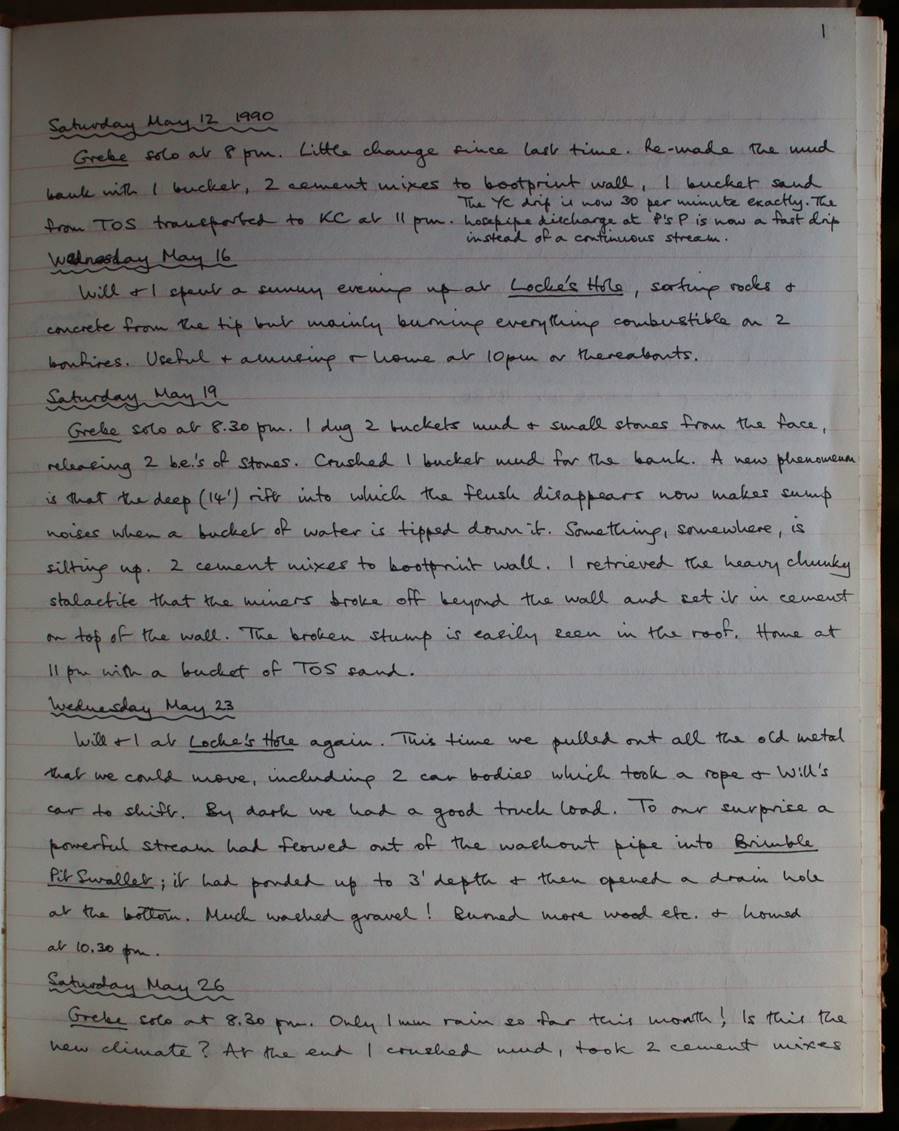 1
Saturday May 12 1990
Grebe solo at 8 pm. Little change since last time. Re-made the mud
bank with 1 bucket, 2 cement mixes to bootprint wall, 1 bucket sand
from TOS transported to KC at 11 pm. The YC drip is now 30 per minute exactly. The
hosepipe discharge at P's P is now a fast drip
instead of a continuous stream.
Wednesday May 16
Will & I spent a sunny evening up at Locke's Hole, sorting rocks &
concrete from the tip but mainly burning everything combustible on 2
bonfires. Useful & amusing & home at 10pm or thereabouts.
Saturday May 19
Grebe solo at 8.30 pm. I dug 2 buckets mud & small stones from the face,
releasing 2 b.e.'s of stones. Crushed 1 bucket mud for the bank. A new phenomenum
is that the deep (14') rift into which the flush disappears now makes sump
noises when a bucket of water is tipped down it. Something, somewhere, is
silting up. 2 cement mixes to bootprint wall. I retrieved the heavy chunky
stalactite that the miners broke off beyond the wall and set it in cement
on top of the wall. The broken stump is easily seen in the roof. Home at
11 pm with a bucket of TOS sand.
Wednesday May 23
Will & I at Locke's Hole again. This time we pulled out all the old metal
that we could move, including 2 car bodies which took a rope & Will's
car to shift. By dark we had a good truck load. To our surprise a
powerful stream had flowed out of the washout pipe into Brimble
Pit Swallet; it had ponded up to 3' depth & then opened a drain hole
at the bottom. Much washed gravel! Burned more wood etc. & homed
at 10.30 pm.
Saturday May 26
Grebe solo at 8.30 pm. Only 1mm rain so far this month! Is this the
new climate? At the end I crushed mud, took 2 cement mixes